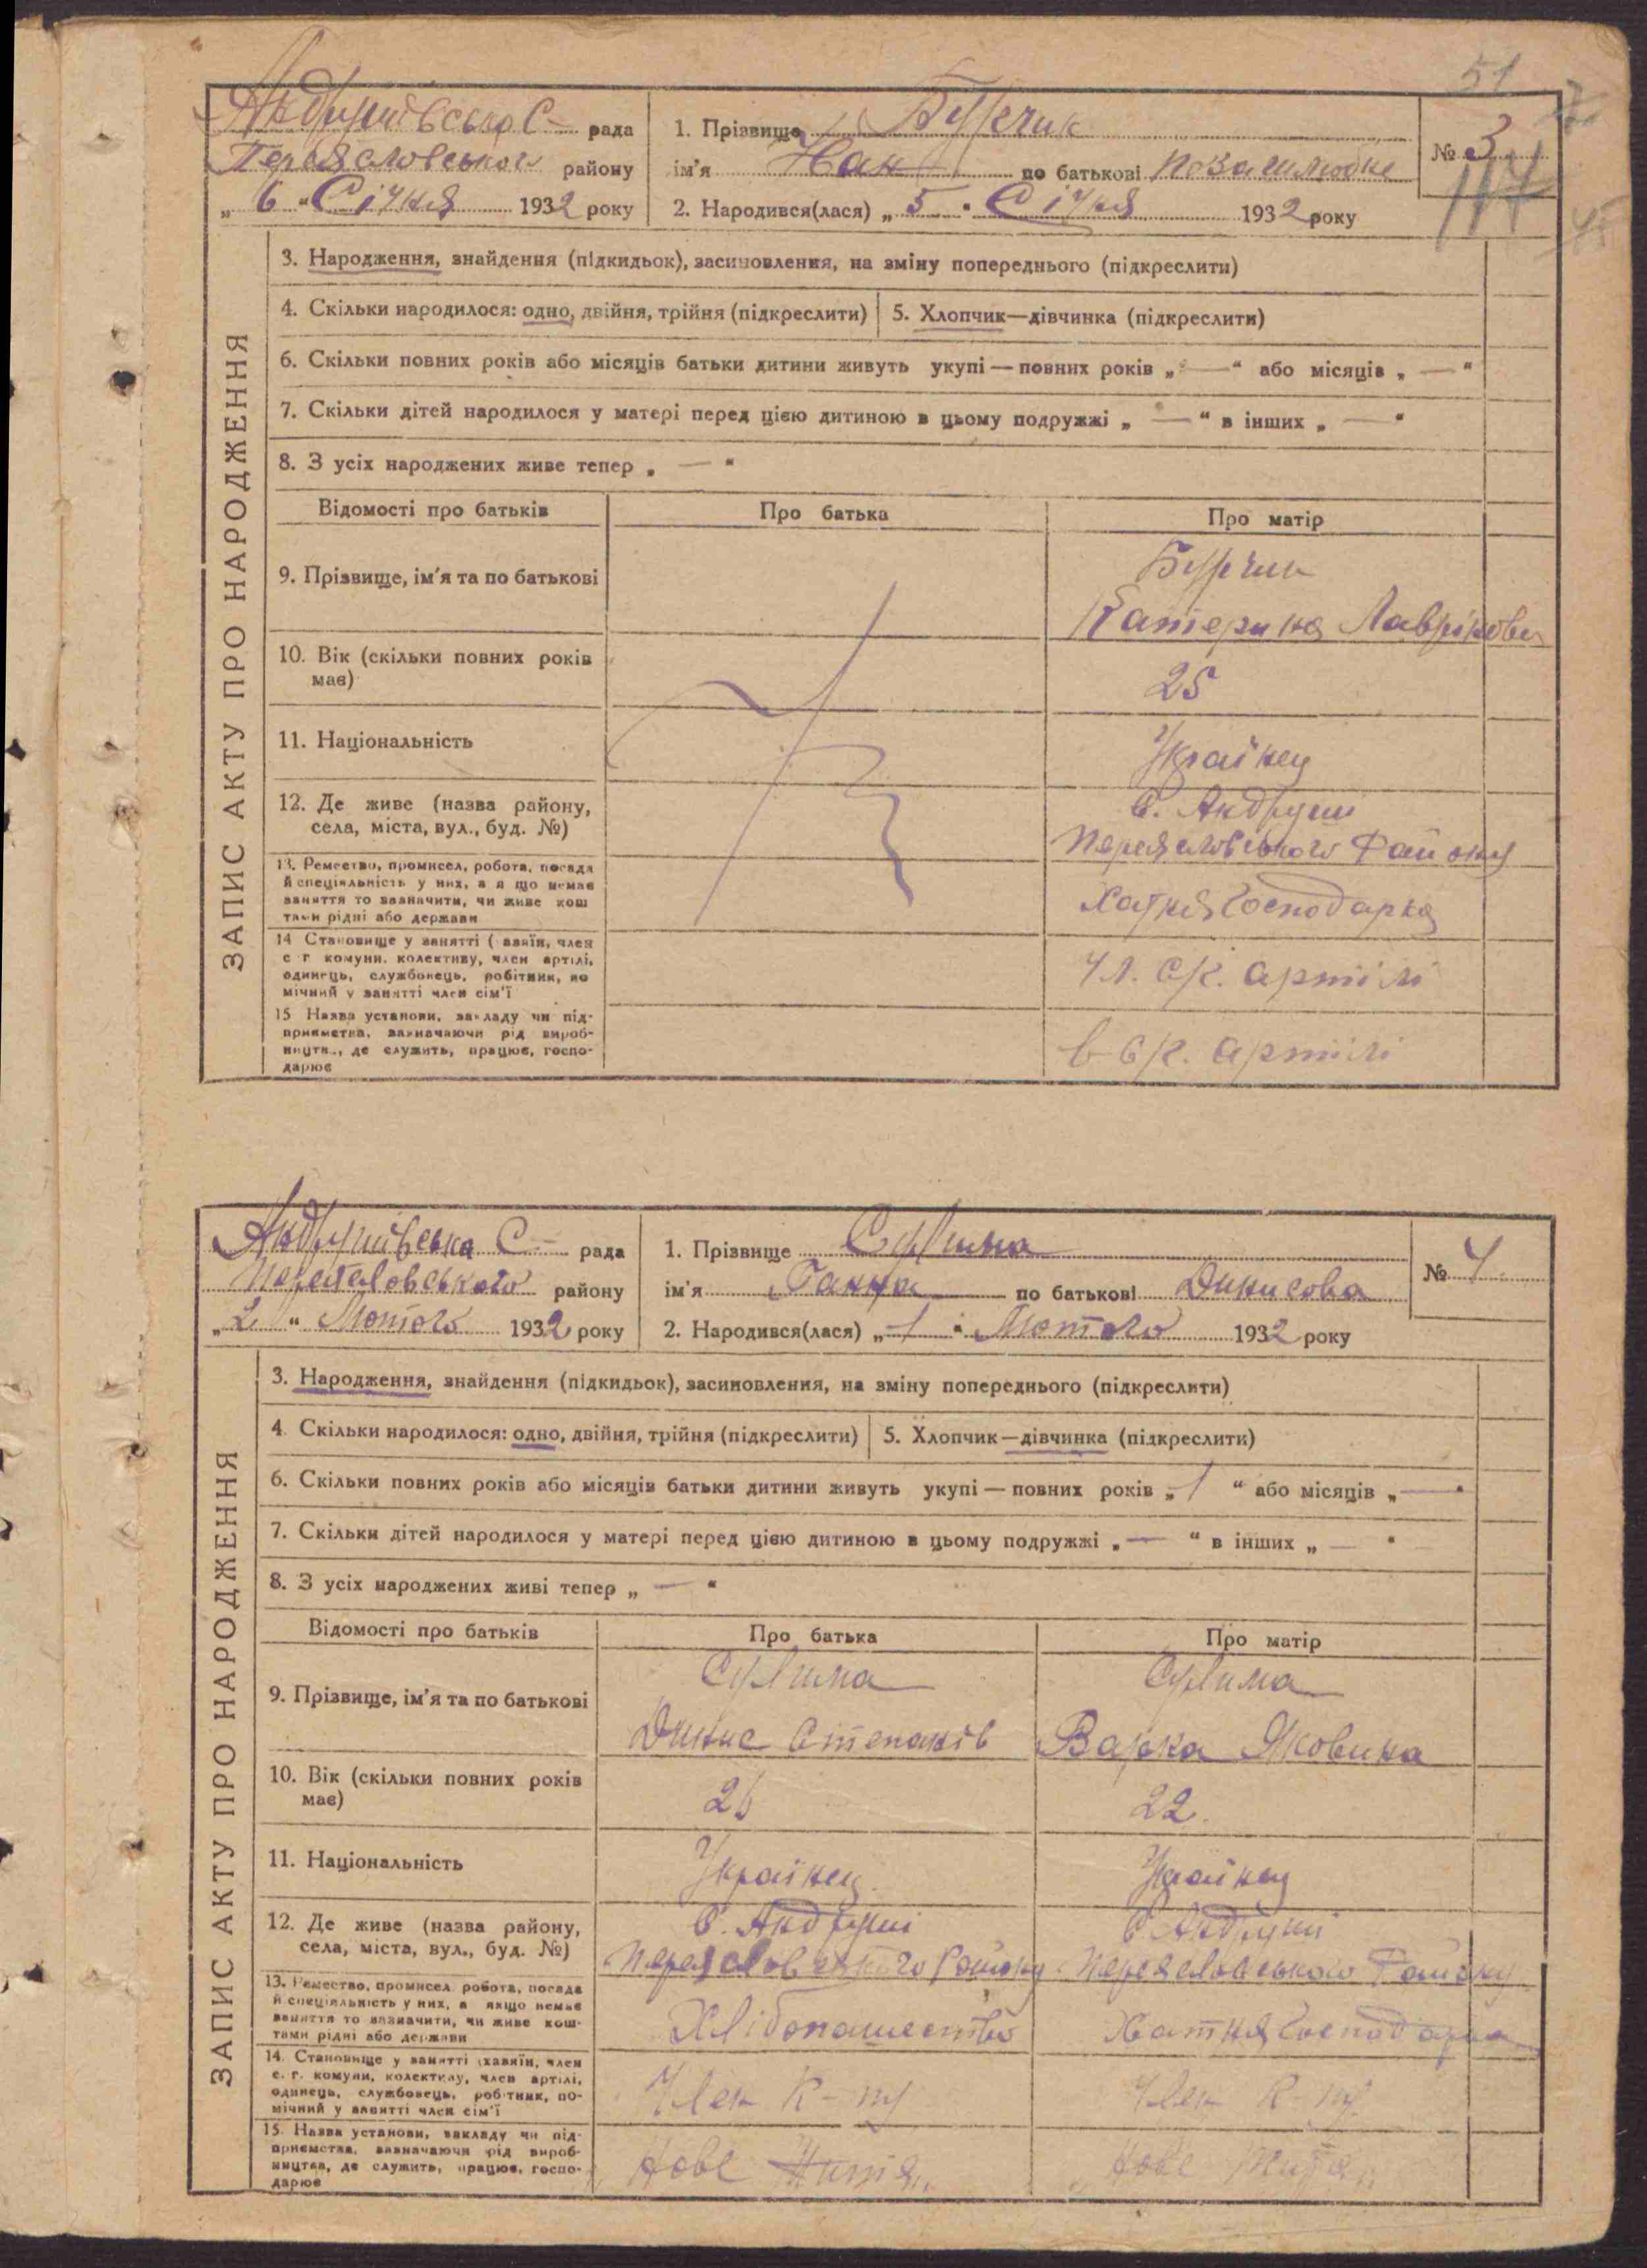 51
Андрушівська С. рада
Переясловського району
„6“ Січня 1932 року
1. Прізвище Бурчик
ім'я Іван по батькові позашлюбне
2. Народився(лася) „5“ Січня 1932 року
№ 3
117
ЗАПИС АКТУ ПРО НАРОДЖЕННЯ
3. Народження, знайдення (підкидьок), засиновлення, на зміну попереднього (підкреслити)
4. Скільки народилося: одно, двійня, трійня (підкреслити) 5. Хлопчик—дівчинка (підкреслити)
6. Скільки повних років або місяців батьки дитини живуть укупі — повних років „—“ або місяців „—“
7. Скільки дітей народилося у матері перед цією дитиною в цьому подружжі „—“ в інших „—“
8. З усіх народжених живе тепер „—“
Відомості про батьків Про батька Про матір
9. Прізвище, ім'я та по батькові
Бурчик
Катерина Лаврінова
10. Вік (скільки повних років
має)
25
11. Національність
Українец
12. Де живе (назва району,
села, міста, вул., буд. №)
С. Андруші
Переясловського Району
13. Ремество, промисел, робота, посада
й спеціяльність у них, а я що немає
заняття то зазначити, чи живе кош
тами рідні або держави
Хатня Господарка
14 Становище у занятті (хазяїн, член
с г комуни, колективу, член артілі,
одинець, службовець, робітник, по
мічний у занятті член сім'ї
чл. с/г. артілі
15 Назва установи, закладу чи під-
приємства, зазначаючи рід вироб-
ництва, де служить, працює, госпо-
дарює
в с/г. артілі
Андрушівська С. рада
Переясловського району
„2“ Лютого 1932 року
1. Прізвище Сулима
ім'я Ганна по батькові Динисова
2. Народився(лася) „1“ Лютого 1932 року
№ 4
ЗАПИС АКТУ ПРО НАРОДЖЕННЯ
3. Народження, знайдення (підкидьок), засиновлення, на зміну попереднього (підкреслити)
4. Скільки народилося: одно, двійня, трійня (підкреслити) 5. Хлопчик—дівчинка (підкреслити)
6. Скільки повних років або місяців батьки дитини живуть укупі — повних років „1“ або місяців „—“
7. Скільки дітей народилося у матері перед цією дитиною в цьому подружжі „—“ в інших „—“
8. З усіх народжених живі тепер „—“
Відомості про батьків Про батька Про матір
9. Прізвище, ім'я та по батькові
Сулима Сулима
Динис Степанів Варка Яковина
10. Вік (скільки повних років
має)
22
11. Національність
Українец Українец
12. Де живе (назва району,
села, міста, вул., буд. №)
С. Андруші С. Андруші
Переясловського Району Переясловського Району
13. Ремество, промисел робота, посада
й спеціяльність у них, а якщо немає
заняття то зазначити, чи живе кош-
тами рідні або держави
Хлібопашество Хатня Господарка
14. Становище у занятті (хазяїн, член
с. г. комуни, колективу, член артілі,
одинець, службовець, робітник, по-
мічний у занятті член сім'ї
Член К-ту Член К-ту
15. Назва установи, закладу чи під-
приємства, зазначаючи рід вироб-
ництва, де служить, працює, госпо-
дарює
„Нове Життя„ „Нове Життя„